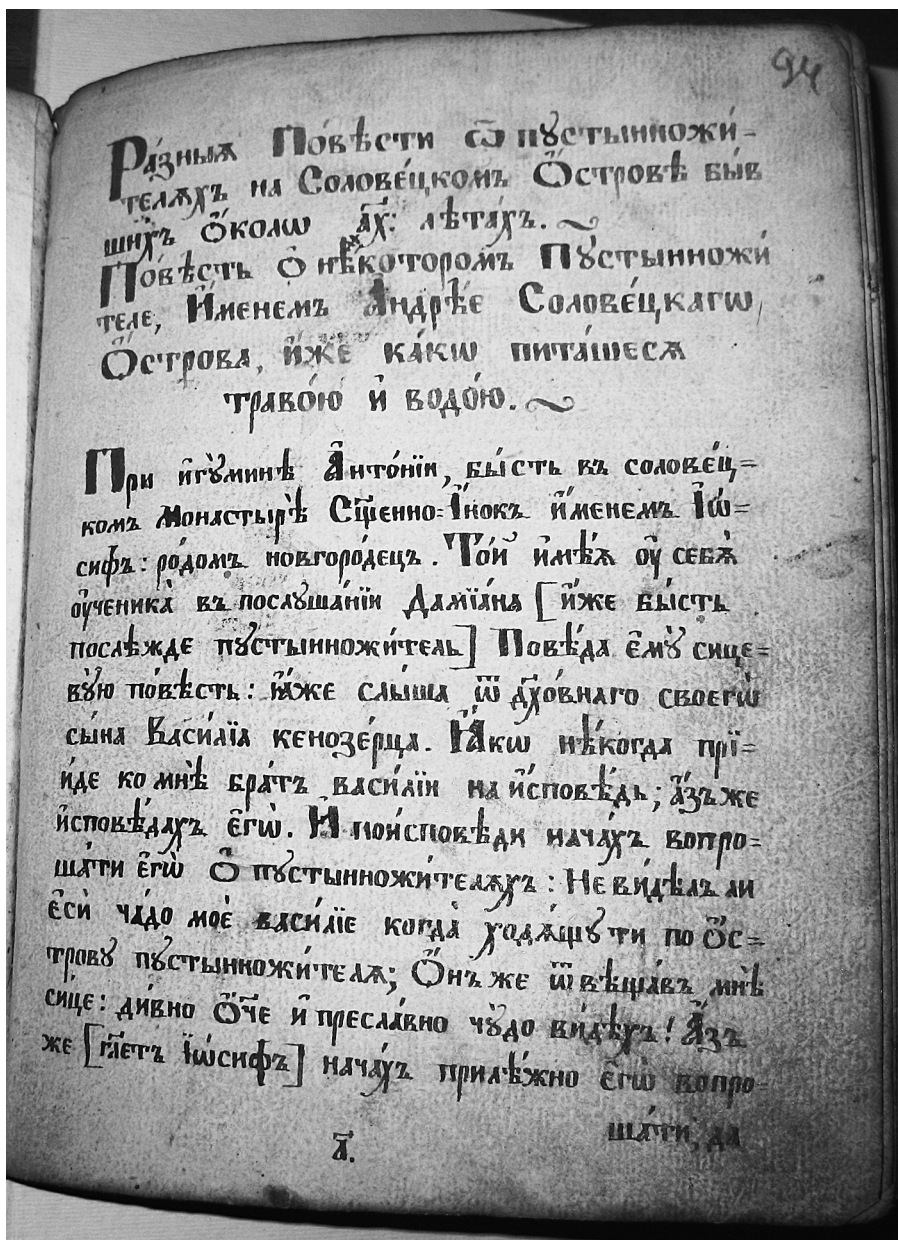 94
Ра́зныѧ По́вѣсти ѿ пꙋстынножи́-
телѧхъ на Солове́цкомъ Ѻ҆́стровѣ бы́в
ши́хъ ѻ҆́колѡ ҂а҃х: лѣта́хъ.
По́вѣсть ѻ҆ нѣ́которомъ Пꙋстынножи́
теле, И҆́менемъ А҆ндрѣ́е Солове́цкагѡ
Ѻ҆́строва, и҆́же ка́кѡ пита́шесѧ
траво́ю и҆ водо́ю.
При и҆гꙋ́минѣ А҆нто́нїи, бы́сть въ солове́ц=
комъ Монастырѣ̀ Сщ҃енно=І҆́нокъ и҆́менемъ І҆ѡ́=
сифъ: ро́домъ новгоро́децъ. То́й и҆мѣ́ѧ оу҆ себѧ̀
оу҆ченика̀ въ послꙋша́нїи Дамїа́на [и҆́же бы́сть
послѣжде пꙋстынножи́тель] Повѣ́да є҆мꙋ̀ сице=
вꙋ́ю по́вѣсть: ꙗ҆́же слы́ша ѿ дх҃о́внаго своегѡ̀
сы́на Васи́лїа кенозе́рца. Ꙗ҆́кѡ нѣ́когда прї=
и́де ко мнѣ̀ бра́тъ васи́лїи на и҆́сповѣ́дь; а҆́зъ же
и҆сповѣ́дахъ є҆гѡ̀. И҆ поисповѣди нача́хъ вопро=
ша́ти є҆гѡ̀ Ѻ҆ пꙋстынножи́телѧхъ: Не ви́дѣлъ ли
є҆сѝ ча́до моѐ васи́лїе когда̀ ходѧ́щꙋ ти по Ѻ҆́с=
тровꙋ пꙋстынножи́телѧ; Ѻ҆́нъ же ѿвѣща́въ мнѣ̀
сице: ди́вно Ѻ҆́ч҃е и҆ пресла́вно чꙋ́до ви́дѣхъ! А҆́зъ
же [гл҃етъ І҆ѡ́сифъ] нача́хъ прилѣ́жно є҆гѡ̀ вопро
ша́ти, да
а҃.